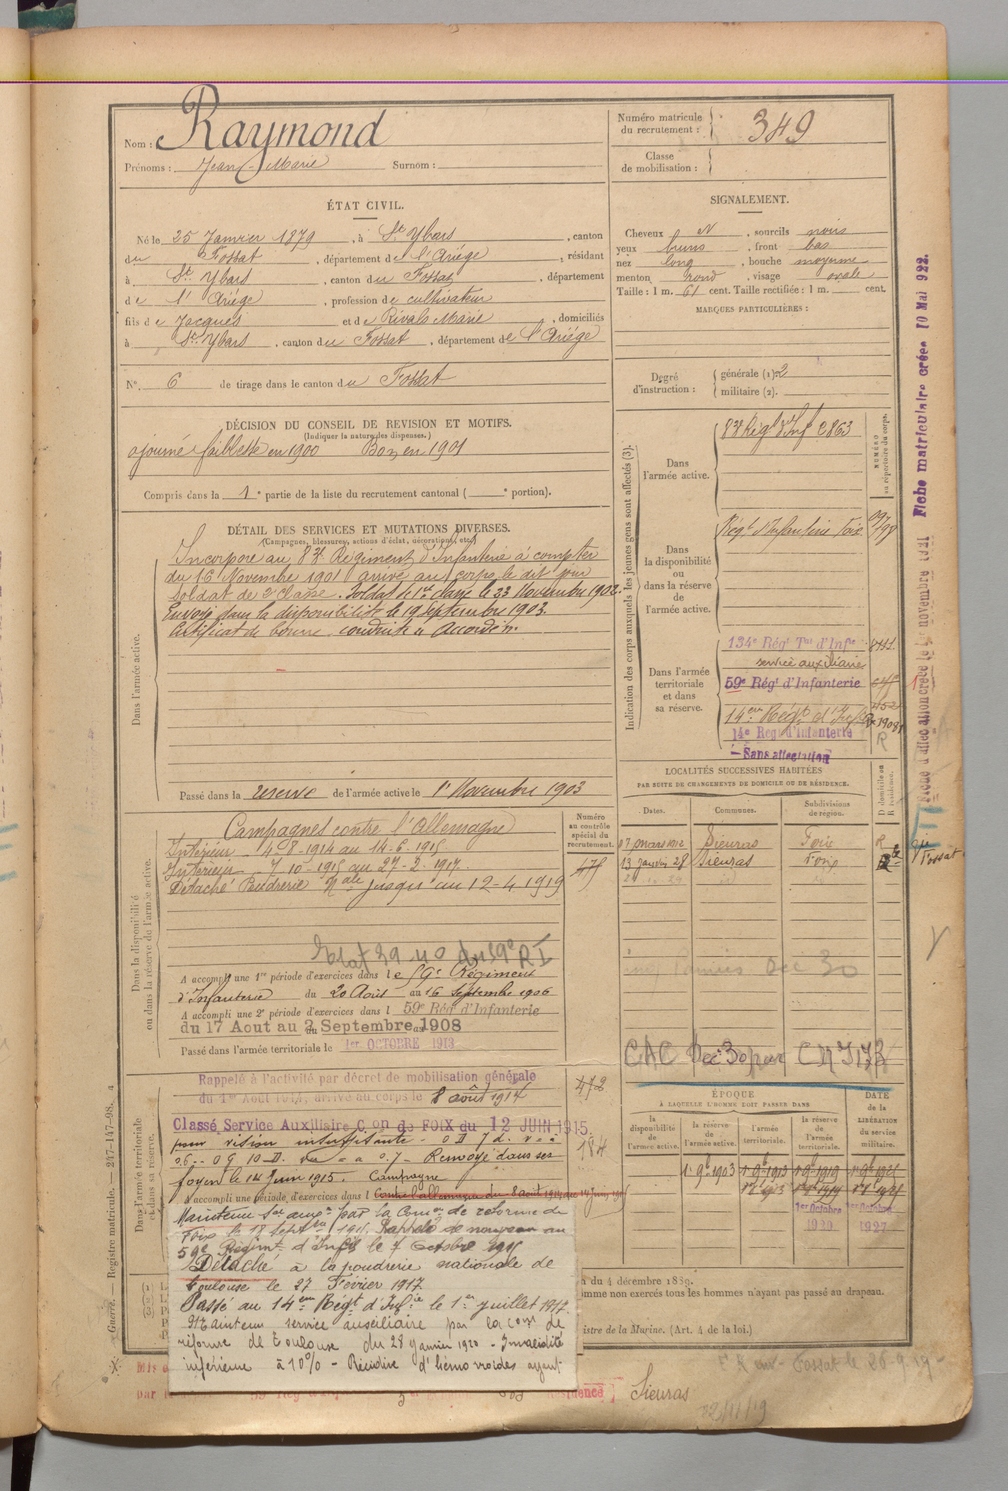 Nom : Raymond
Prénoms : Jean-Marie Surnom :
Numéro matricule du recrutement : 349
Classe de mobilisation :
ÉTAT CIVIL.
Né le 25 Janvier 1879, à St Ybars, canton
du Fossat, département de l'Ariége, résidant
à St Ybars, canton du Fossat, département
de l'Ariége, profession de cultivateur
fils de Jacques et de Rivals Marie, domiciliés
à St Ybars, canton du Fossat, département de l'Ariége
N° 6 de tirage dans le canton du Fossat
SIGNALEMENT.
Cheveux N, sourcils noirs
yeux bruns, front bas
nez long, bouche moyenne
menton rond, visage ovale
Taille : 1 m. 61 cent. Taille rectifiée : 1 m. cent.
MARQUES PARTICULIÈRES :
Degré d'instruction : générale (1) 2
militaire (2).
DÉCISION DU CONSEIL DE REVISION ET MOTIFS.
(Indiquer la nature des dispenses.)
ajourné faiblesse en 1900 Bon en 1901
Compris dans la 1e partie de la liste du recrutement cantonal ( e portion).
DÉTAIL DES SERVICES ET MUTATIONS DIVERSES.
(Campagnes, blessures, actions d'éclat, décorations, etc.)
Dans l'armée active.
Incorporé au 83e Régiment d'Infanterie à compter
du 16 Novembre 1901 arrivé au corps le dit jour
Soldat de 2e classe. Soldat de 1re classe le 23 Novembre 1902.
Envoyé dans la disponibilité le 19 septembre 1903.
Certificat de bonne conduite "Accordé".
Passé dans la réserve de l'armée active le 1er Novembre 1903
Indication des corps auxquels les jeunes gens sont affectés (3).
Dans l'armée active.
83e Régt d'Inf 2863
NUMÉRO au répertoire du corps.
Dans la disponibilité ou dans la réserve de l'armée active.
Régt d'Infanterie Foix
Dans l'armée territoriale et dans sa réserve.
134e Régt Tal d'Infie
service auxiliaire
59e Régt d'Infanterie
14eme Régt d'Infie
14e Régt d'Infanterie
— Sans affectation
Fiche matriculaire créée 10 Mai 922.
LOCALITÉS SUCCESSIVES HABITÉES
PAR SUITE DE CHANGEMENTS DE DOMICILE OU DE RÉSIDENCE.
Dates. Communes. Subdivisions de région. D domicile ou R résidence.
17 mars 1912 Sieuras Foix R
13 janvier 28 Sieuras Foix
Fossat
Dans la disponibilité ou dans la réserve de l'armée active.
Numéro au contrôle spécial du recrutement.
Campagnes contre l'Allemagne
Intérieur 4-8-1914 au 14-6-1915
Intérieur 7-10-1915 au 27-2-1917
Détaché Poudrerie Nale jusqu'au 12-4-1919
A accompli une 1re période d'exercices dans le 59e Régiment
d'Infanterie du 20 Août au 16 Septembre 1906
A accompli une 2e période d'exercices dans l 59e Régt d'Infanterie
du 17 Aout au 2 Septembre 1908
Passé dans l'armée territoriale le 1er OCTOBRE 1913
Dans l'armée territoriale et dans sa réserve.
Rappelé à l'activité par décret de mobilisation générale
du 1er Août 1914, arrivé au corps le 8 août 1914
472
Classé Service Auxiliaire Con de FOIX du 12 JUIN 1915.
184
pour vision insuffisante
Renvoyé dans ses
foyers le 14 Juin 1915. Campagne
A accompli une période d'exercices dans l Contre l'allemagne du 8 aout 1914
Maintenu Sce auxre par la Comon de réforme de
Foix le 18 Sept 1915. Passé de nouveau au
59e Régimt d'Infie le 7 Octobre 1915
Détaché à la poudrerie nationale de
Toulouse le 27 Février 1917
Passé au 14eme Régt d'Infie le 1er juillet 1917.
Maintenu service auxiliaire par la Comon de
réforme de Toulouse du 28 janvier 1920 - Invalidité
inférieure à 10% - Récidive d'hémorroides ayant
ÉPOQUE
À LAQUELLE L'HOMME DOIT PASSER DANS
la disponibilité de l'armée active.
la réserve de l'armée active.
l'armée territoriale.
la réserve de l'armée territoriale.
DATE de la LIBÉRATION du service militaire.
1er Octobre 1920
1er Octobre 1927
n du 4 décembre 1889.
omme non exercés tous les hommes n'ayant pas passé au drapeau.
istre de la Marine. (Art. 4 de la loi.)
Guerre. — Registre matricule. 247-147-98.
Sieuras